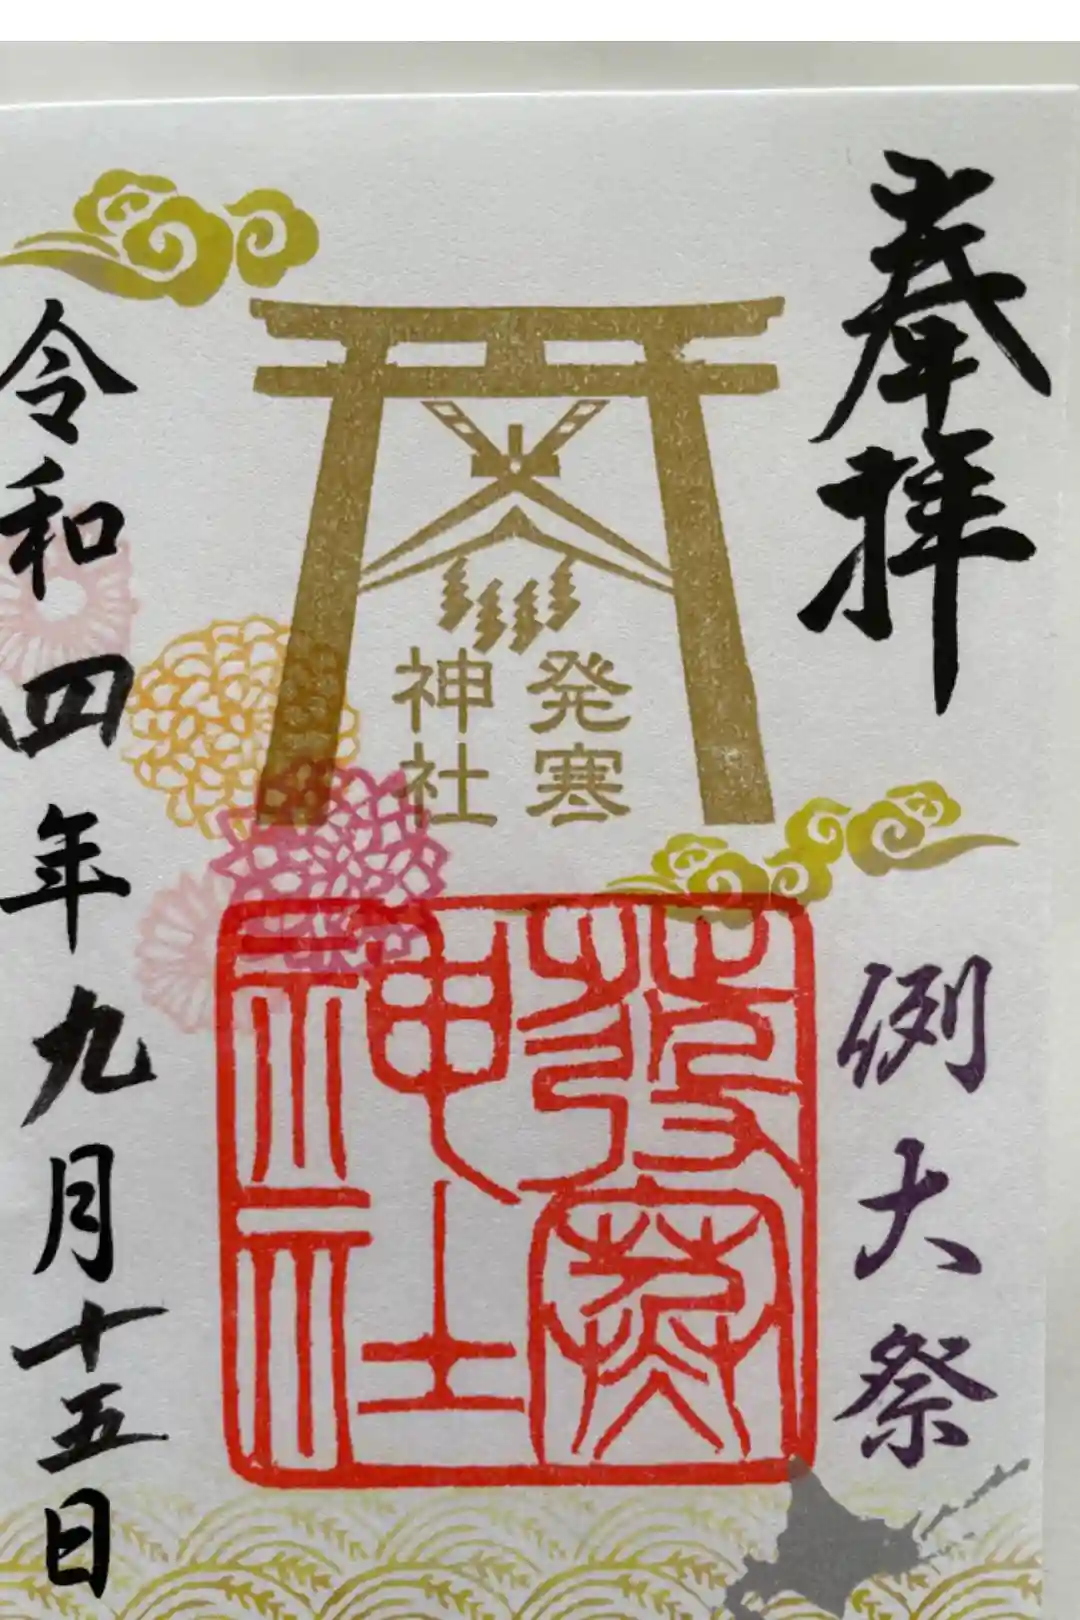 奉拝
発寒
神社
例大祭
發寒
神社
令和四年九月十五日